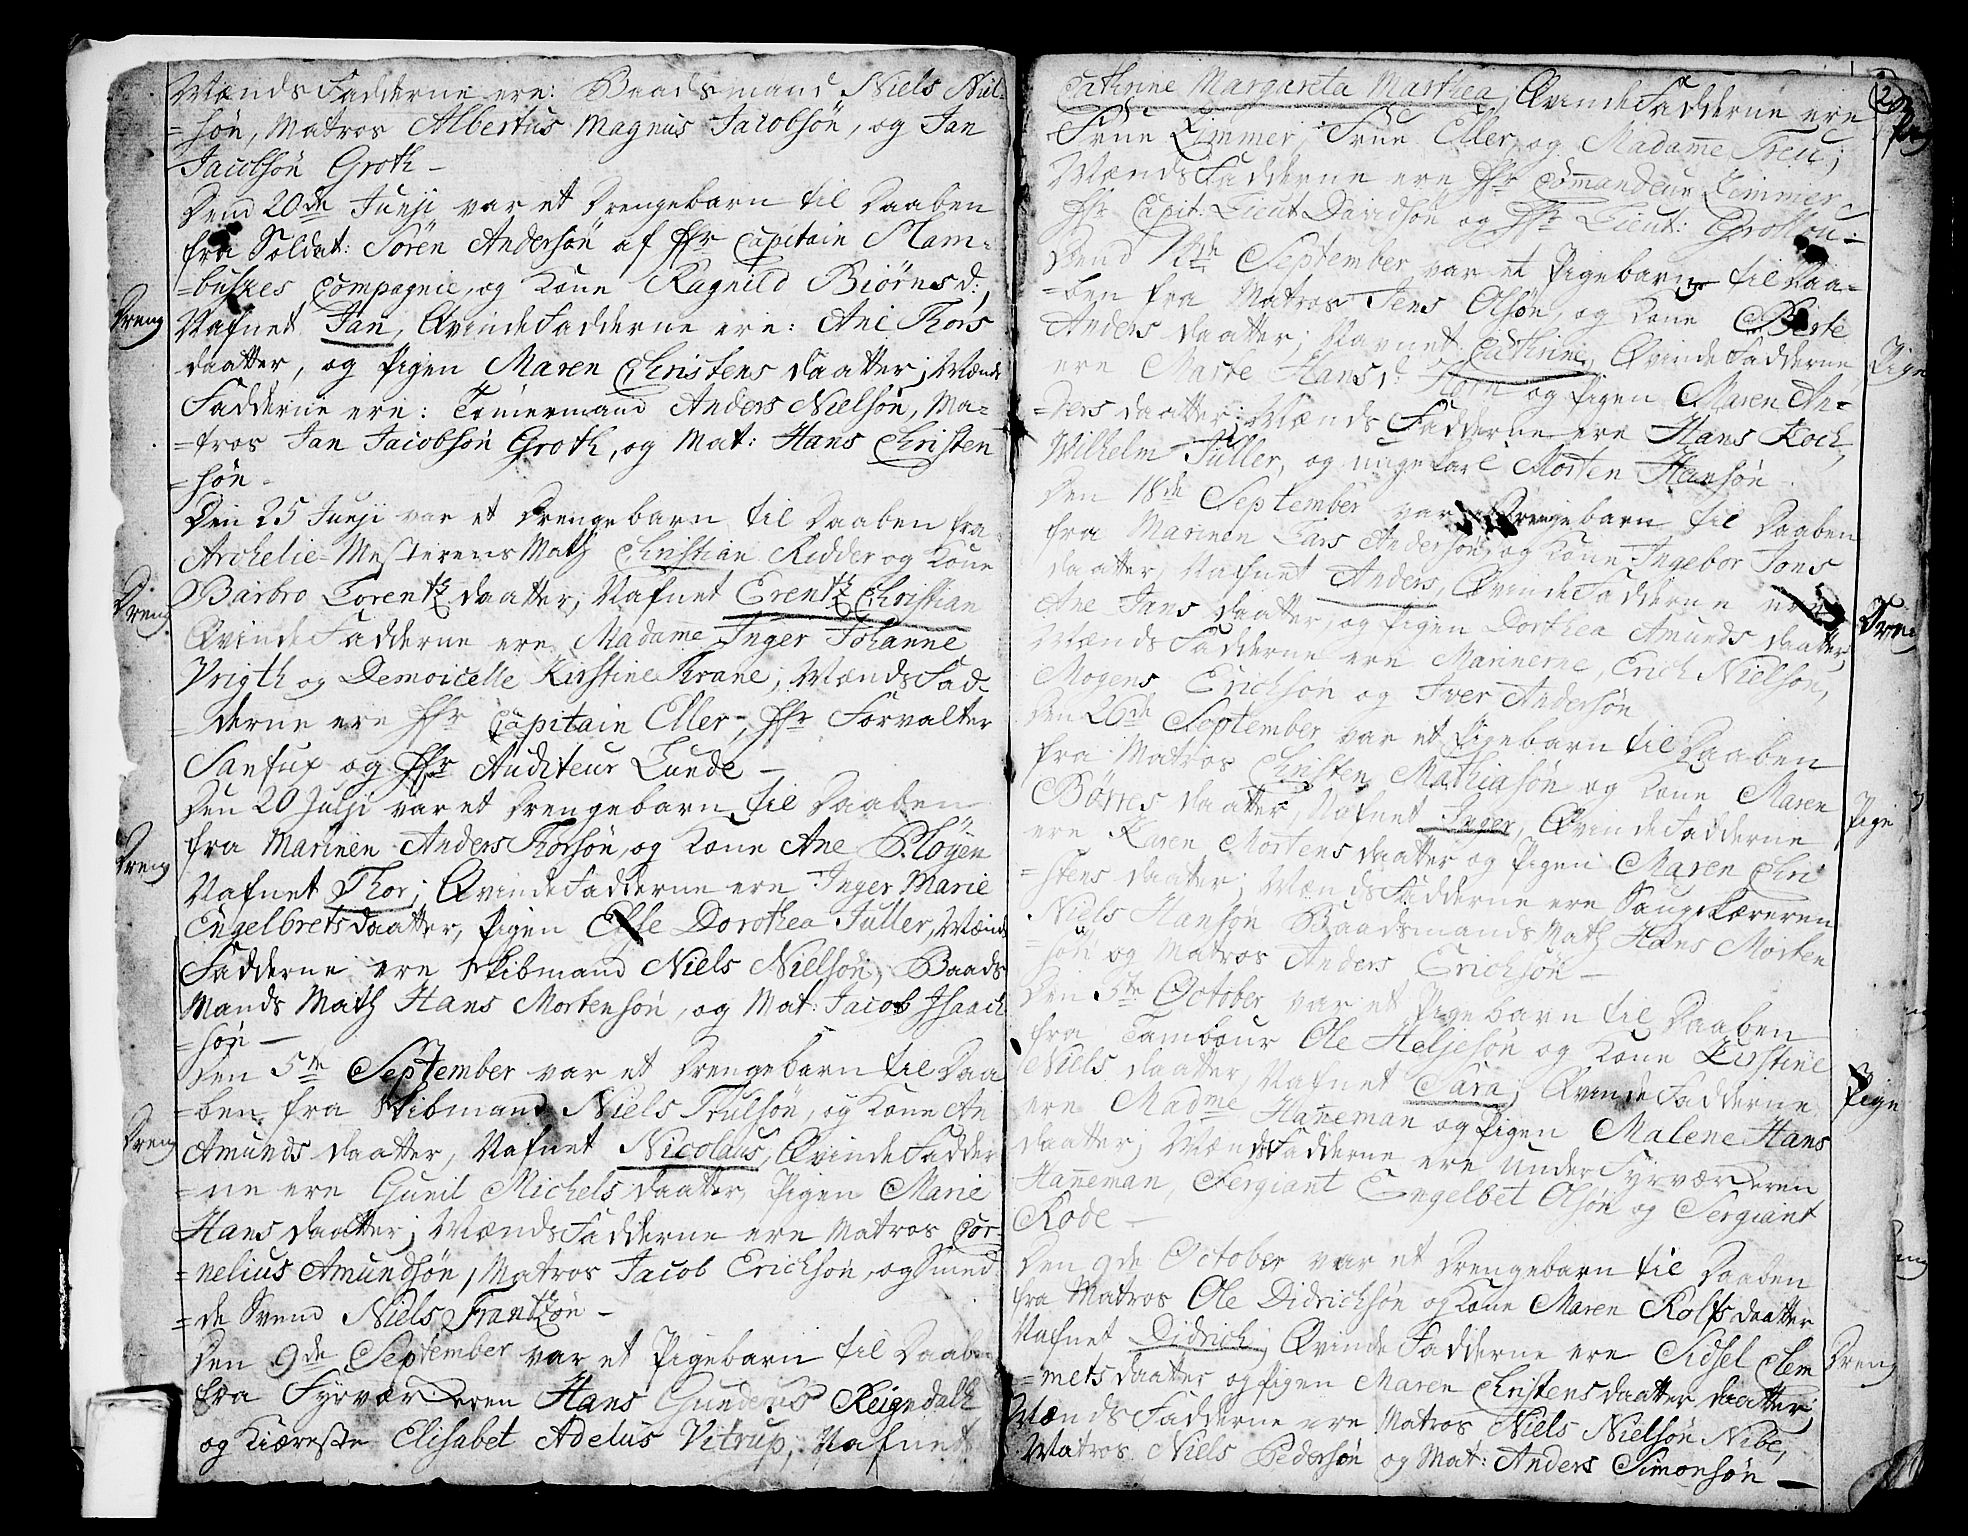 Mænds Fadderne ere: Baadsmand Niels Niel-
=søn, Matros Albertus Magnus Jacobsøn, og Jan
Jacobsøn Groth –
Dend 20de Junji var et Drengebarn til Daaben
fra Soldat: Søren Andersøn af Hr Capitain Stam-
=buskes Compagnie, og Kone Ragnild Biørnsd:,
Dreng
Nafnet Jan, QvindeFadderne ere: Ane Thors
daatter, og Pigen Maren Christens daatter; Mænds
Fadderne ere: Tømermand Anders Nielsøn, Ma-
=tros Jan Jacobsøn Groth, og Mat: Hans Christen
=søn –
Den 25 Junji var et Drengebarn til Daaben fra
Archelie-Mesterens Math Christian Ridder og Kone
Dreng
Barbro Lorentz daatter, Nafnet Erentz Christian
QvindeFadderne ere Madame Inger Johanne
Vrigth og Demoicelle Kirstine Krane; MændsFad-
=derne ere Hr Capitain Eller, Hr Forvalter
Sanfux og Hr Auditeur Lunde –
Den 20 Julji var et Drengebarn til Daaben
Dreng
fra Marinen Anders Thorsøn, og Kone Ane Pløyen
Nafnet Thor; QvindeFadderne ere Inger Marie
Engelbrets daatter, Pigen Else Dorothea Juller, Mænds
Fadderne ere Skibmand Niels Nielsøn, Baads
Mands Math Hans Mortensøn, og Mat: Jacob Isaach
=søn –
Den 5te September var et Drengebarn til Daa
Dreng
=ben fra Skibmand Niels Trulsøn, og Kone An
Amunds daatter, Nafnet Nicolaus, QvindeFadder
=ne ere Gunil Michels daatter, Pigen Marie
Hans daatter; MændsFadderne ere Matros Cor-
=nelius Amundsøn, Matros Jacob Ericksøn, og Smed
=de Svend Niels Frantzøn –
Den 9de September var et Pigebarn til Daaben
fra Fyrværckeren Hans Gunderus Reigndalh
og Kiæreste Elisabet Adelus Vitrup, Nafnet
2
Cathrine Margareta Marthea, QvindeFadderne ere
Frue Zimmer, Frue Eller, og Madame Treu;
MændsFadderne ere Hr Commandeur Zimmer
Hr Capit: Lieut Davidsøn og Hr Lieut:
Dend 12de September var et Pigebarn til Daa-
=ben fra Matros Jens Olsøn, og Kone Berte
Anders daatter, Navnet Cathrine, QvindeFadderne
Pige
ere Marte Hansd: Horn og Pigen Maren An-
=ders daatter; Mænds Fadderne ere Hans Koch,
Wilhelm Juller, og unge karl Morten Hansøn –
Den 18de September var Drengebarn til Daaben
fra Marinen Lars Andersøn, og Kone Ingebor Jons
daatter, Nafnet Anders, QvindeFadderne ere
Dreng
Ane Jans daatter, og Pigen Dorthea Amunds daatter,
MændsFadderne ere Marinerne Erich Nielsøn,
Mogens Ericksøn og Iver Andersøn
Den 26de September var et Pigebarn til Daaben
fra Matros Christen Mathiasøn og Kone Maren
Børres daatter, Nafnet Inger, QvindeFadderne
Pige
ere Karen Mortens daatter og Pigen Maren Chri
=stens daatter; MændsFadderne ere Saugskæreren
Niels Hansøn BaadsmandsMath Hans Morten
=søn og Matros Anders Ericksøn –
Den 3te October var et Pigebarn til Daaben
fra Tambour Ole Heljesøn og Kone Kirstine
Niels daatter, Nafnet Sara, QvindeFadderne
Pige
ere Madme Haneman og Pigen Malene Hans
daatter; MændsFadderne ere UnderFyrværckeren
Haneman, Sergiant Engelbet Olsøn og Sergiant
Rode –
Den 9de October var et Drengebarn til Daaben
fra Matros Ole Didricksøn og Kone Maren Rolfs daatter
Nafnet Didrich, QvindeFadderne ere Sidsel Clem
Dreng
=mets daatter og Pigen Maren Christens daatter daatter
MændsFadderne ere Matros Niels Nielsøn Nibe,
Matros Niels Pedersøn og Mat: Anders Simonsøn –